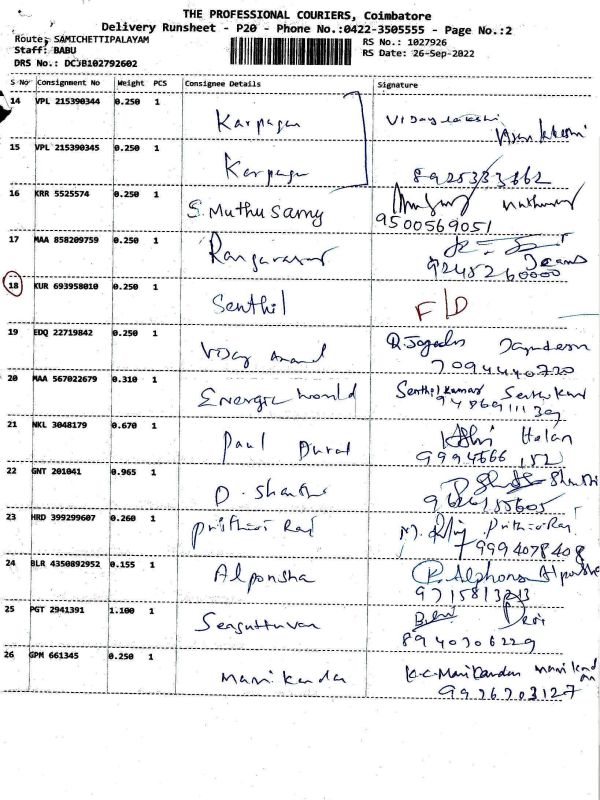 THE PROFESSIONAL COURIERS, Coimbatore
Delivery Runsheet - P20 - Phone No.:0422-3505555 - Page No.:2
Route: SAMICHETTIPALAYAM
RS No.: 1027926
Staff: BABU
RS Date: 26-Sep-2022
DRS No.: DCJB102792602
S No Consignment No Weight PCS Consignee Details Signature
14 VPL 215390344 0.250 1 Karpagam
15 VPL 215390345 0.250 1
8925333862
16 KRR 5525574 0.250 1 S. Muthu Samy
9500569051
17 MAA 858209759 0.250 1
9245260000
18 KUR 693958010 0.250 1 Senthil F/D
19 EDQ 22719842 0.250 1 Vijay Anand
7094440720
20 MAA 567022679 0.310 1 Energic World Senthil kumar
21 NKL 3048179 0.670 1 Paul Durai Helan
9994666152
22 GNT 201041 0.965 1
23 HRD 399299607 0.260 1 Prithivi Raj Prithivi Raj
79994078408
24 BLR 4350892952 0.155 1 Alponsha
9715813213
25 PGT 2941391 1.100 1 Senguttuvan Devi
8940706229
26 GPM 661345 0.250 1 Mani kanda K.C. Manikandan